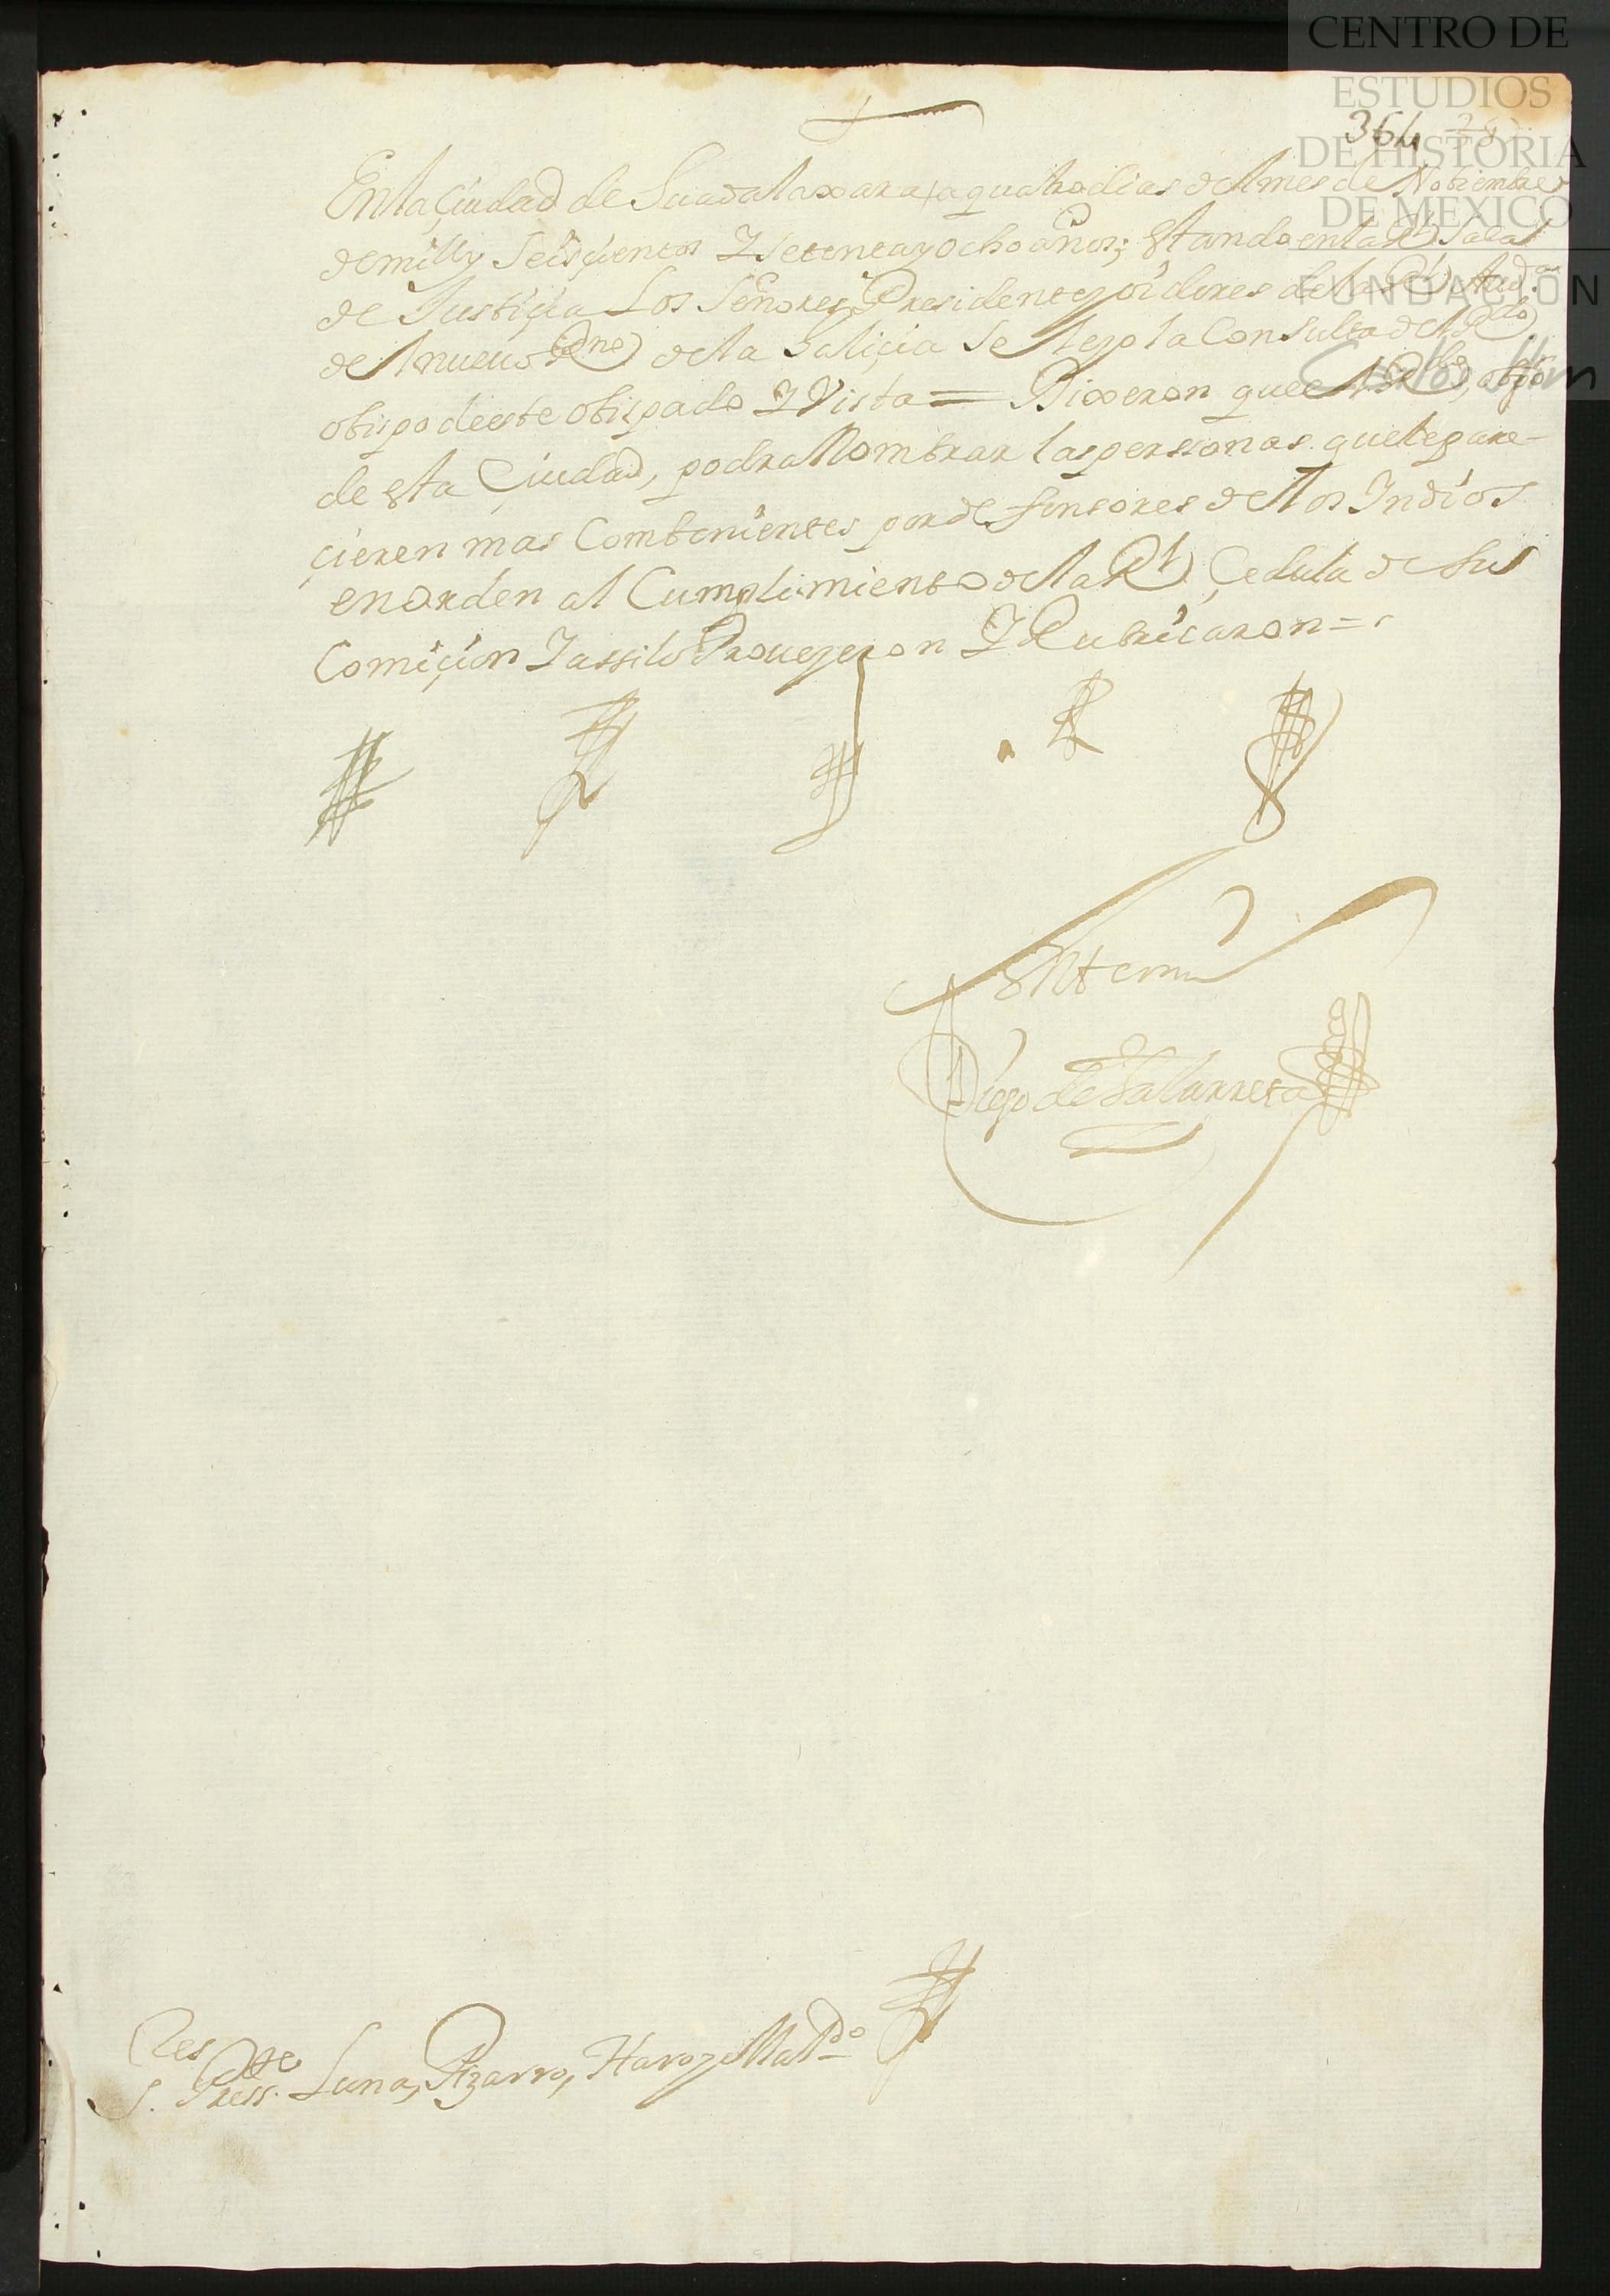 CENTRO DE
ESTUDIOS
DE HISTORIA
DE MEXICO
FUNDACIÓN
Carlos Slim
364
En la çiudad de Guadalaxara, a quatro dias del mes de Nobiembre
de mill y Seisçientos Y Setenta y ocho años; Estando en la Rl Sala
de Justiçia Los Señores Presidente y oidores de la Rl Auda
del nueuo Rno de la Galiçia Se leyo la Consulta del Rdo
obispo deeste obispado Y Vista = Dixeron que el Rdo, obpo
de esta Ciudad, podra Nombrar las perssonas que le pare-
çieren mas Combenientes por defensores de los Indios
en orden al Cumplimiento de la Rl Çedula de Su
Comiçion Y assi lo Proueyeron Y Rubricaron =
Ante mi
Diego de Galarreta
S.res Presste. Luna, Pizarro, Haro, y Maldo